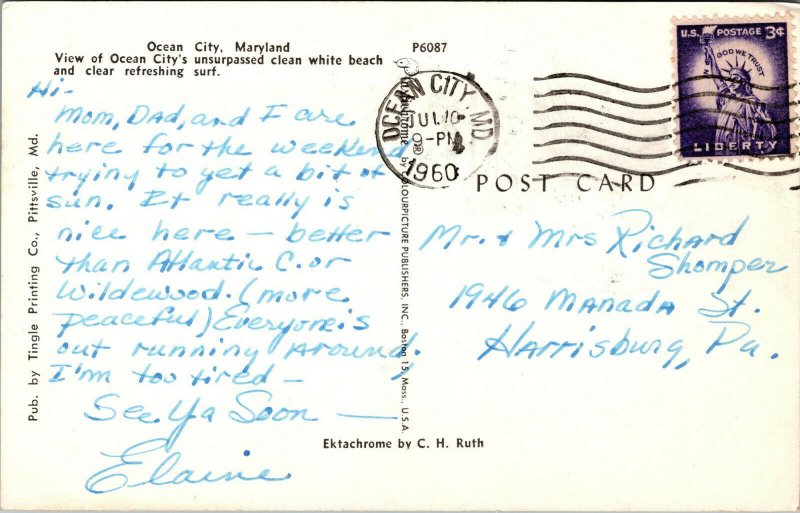 Ocean City, Maryland
View of Ocean City's unsurpassed clean white beach
and clear refreshing surf.
P6087
Hi-
Mom, Dad, and I are
here for the weekend
trying to get a bit of
sun. It really is
nice here — better
than Atlantic C. or
Wildewood. (more
peaceful) Everyone is
out running around.
I'm too tired —
See Ya Soon —
Elaine
Pub. by Tingle Printing Co., Pittsville, Md.
by COLOURPICTURE PUBLISHERS, INC., Boston 15, Mass., U.S.A.
Ektachrome by C. H. Ruth
OCEAN CITY, MD.
JUL 10
-PM
1960
U.S. POSTAGE 3¢
IN GOD WE TRUST
LIBERTY
POST CARD
Mr. + Mrs Richard
Shomper
1946 Manada St.
Harrisburg, Pa.